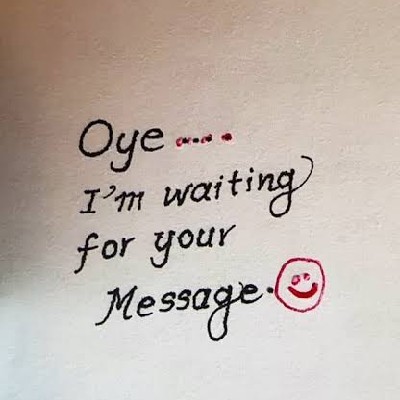 Oye....
I'm waiting
for your
Message.